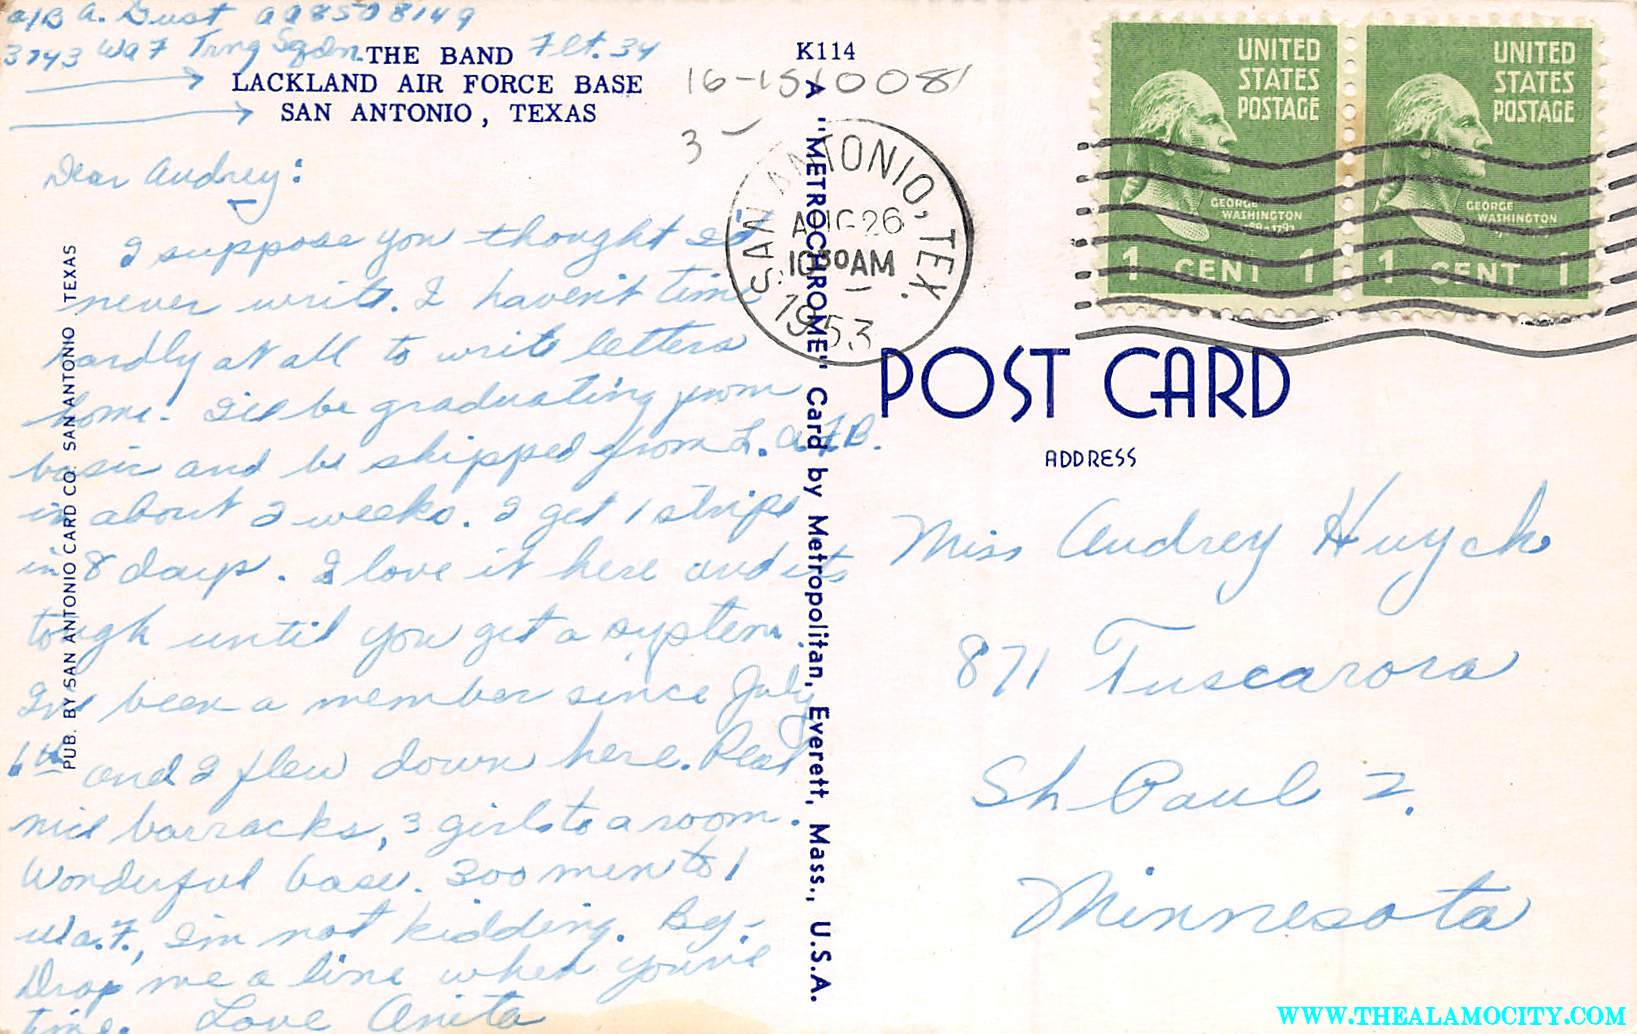 a/B A. Gust AA8508149
3743 WaF Trng Sqdn. Flt. 34
THE BAND
LACKLAND AIR FORCE BASE
SAN ANTONIO, TEXAS
K114
16-151008
3 -
Dear Audrey:
I suppose you thought I'd
never write. I haven't time
hardly at all to write letters
home. I'll be graduating from
basic and be shipped from L.A.F.B.
in about 2 weeks. I get 1 stripe
in 8 days. I love it here and its
tough until you get a system.
I've been a member since July
6th and I flew down here. Real
nice barracks, 3 girls to a room.
Wonderful base. 300 men to 1
Wa.F., I'm not kidding. By-
Drop me a line when you've
time. Love Anita
PUB. BY SAN ANTONIO CARD CO. SAN ANTONIO TEXAS
A "METROCHROME" Card by Metropolitan, Everett, Mass., U.S.A.
SAN ANTONIO, TEX.
AUG 26
10 30 AM
1953
UNITED
STATES
POSTAGE
GEORGE
WASHINGTON
1 CENT 1
UNITED
STATES
POSTAGE
GEORGE
WASHINGTON
1 CENT 1
POST CARD
ADDRESS
Miss Audrey Huyck
871 Tuscarora
St Paul 2.
Minnesota
WWW.THEALAMOCITY.COM